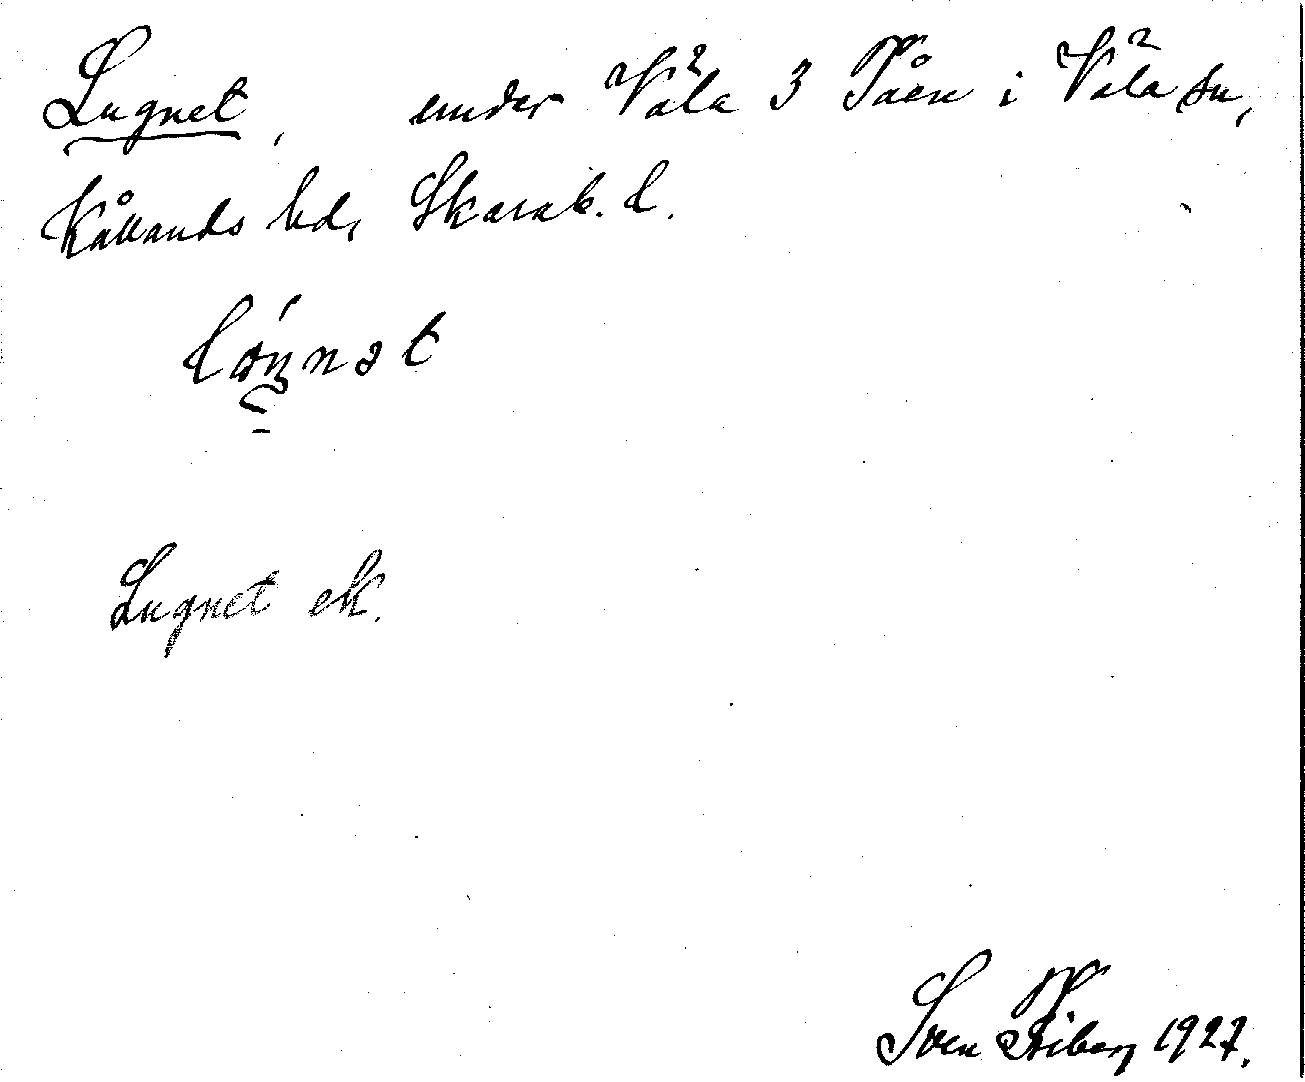 Lugnet, under Väla 3 Påen i Väla sn,
Kållands hd, Skarab. l.
Lugnet ek.
Sven Friberg 1927.